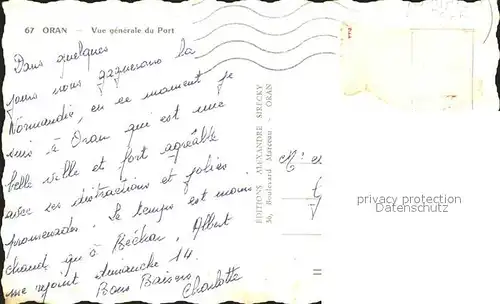 67 ORAN — Vue générale du Port
Dans quelques
jours nous gagnerons la
Normandie, en ce moment je
suis à Oran qui est une
belle ville et fort agréable
avec ses distractions et jolies
promenades. Le temps est moins
chaud qu'à Béchar. Albert
me rejoint dimanche 14.
Bons Baisers
Charlotte
EDITIONS ALEXANDRE SIRECKY
30, Boulevard Marceau - ORAN
M: et
privacy protection
Datenschutz